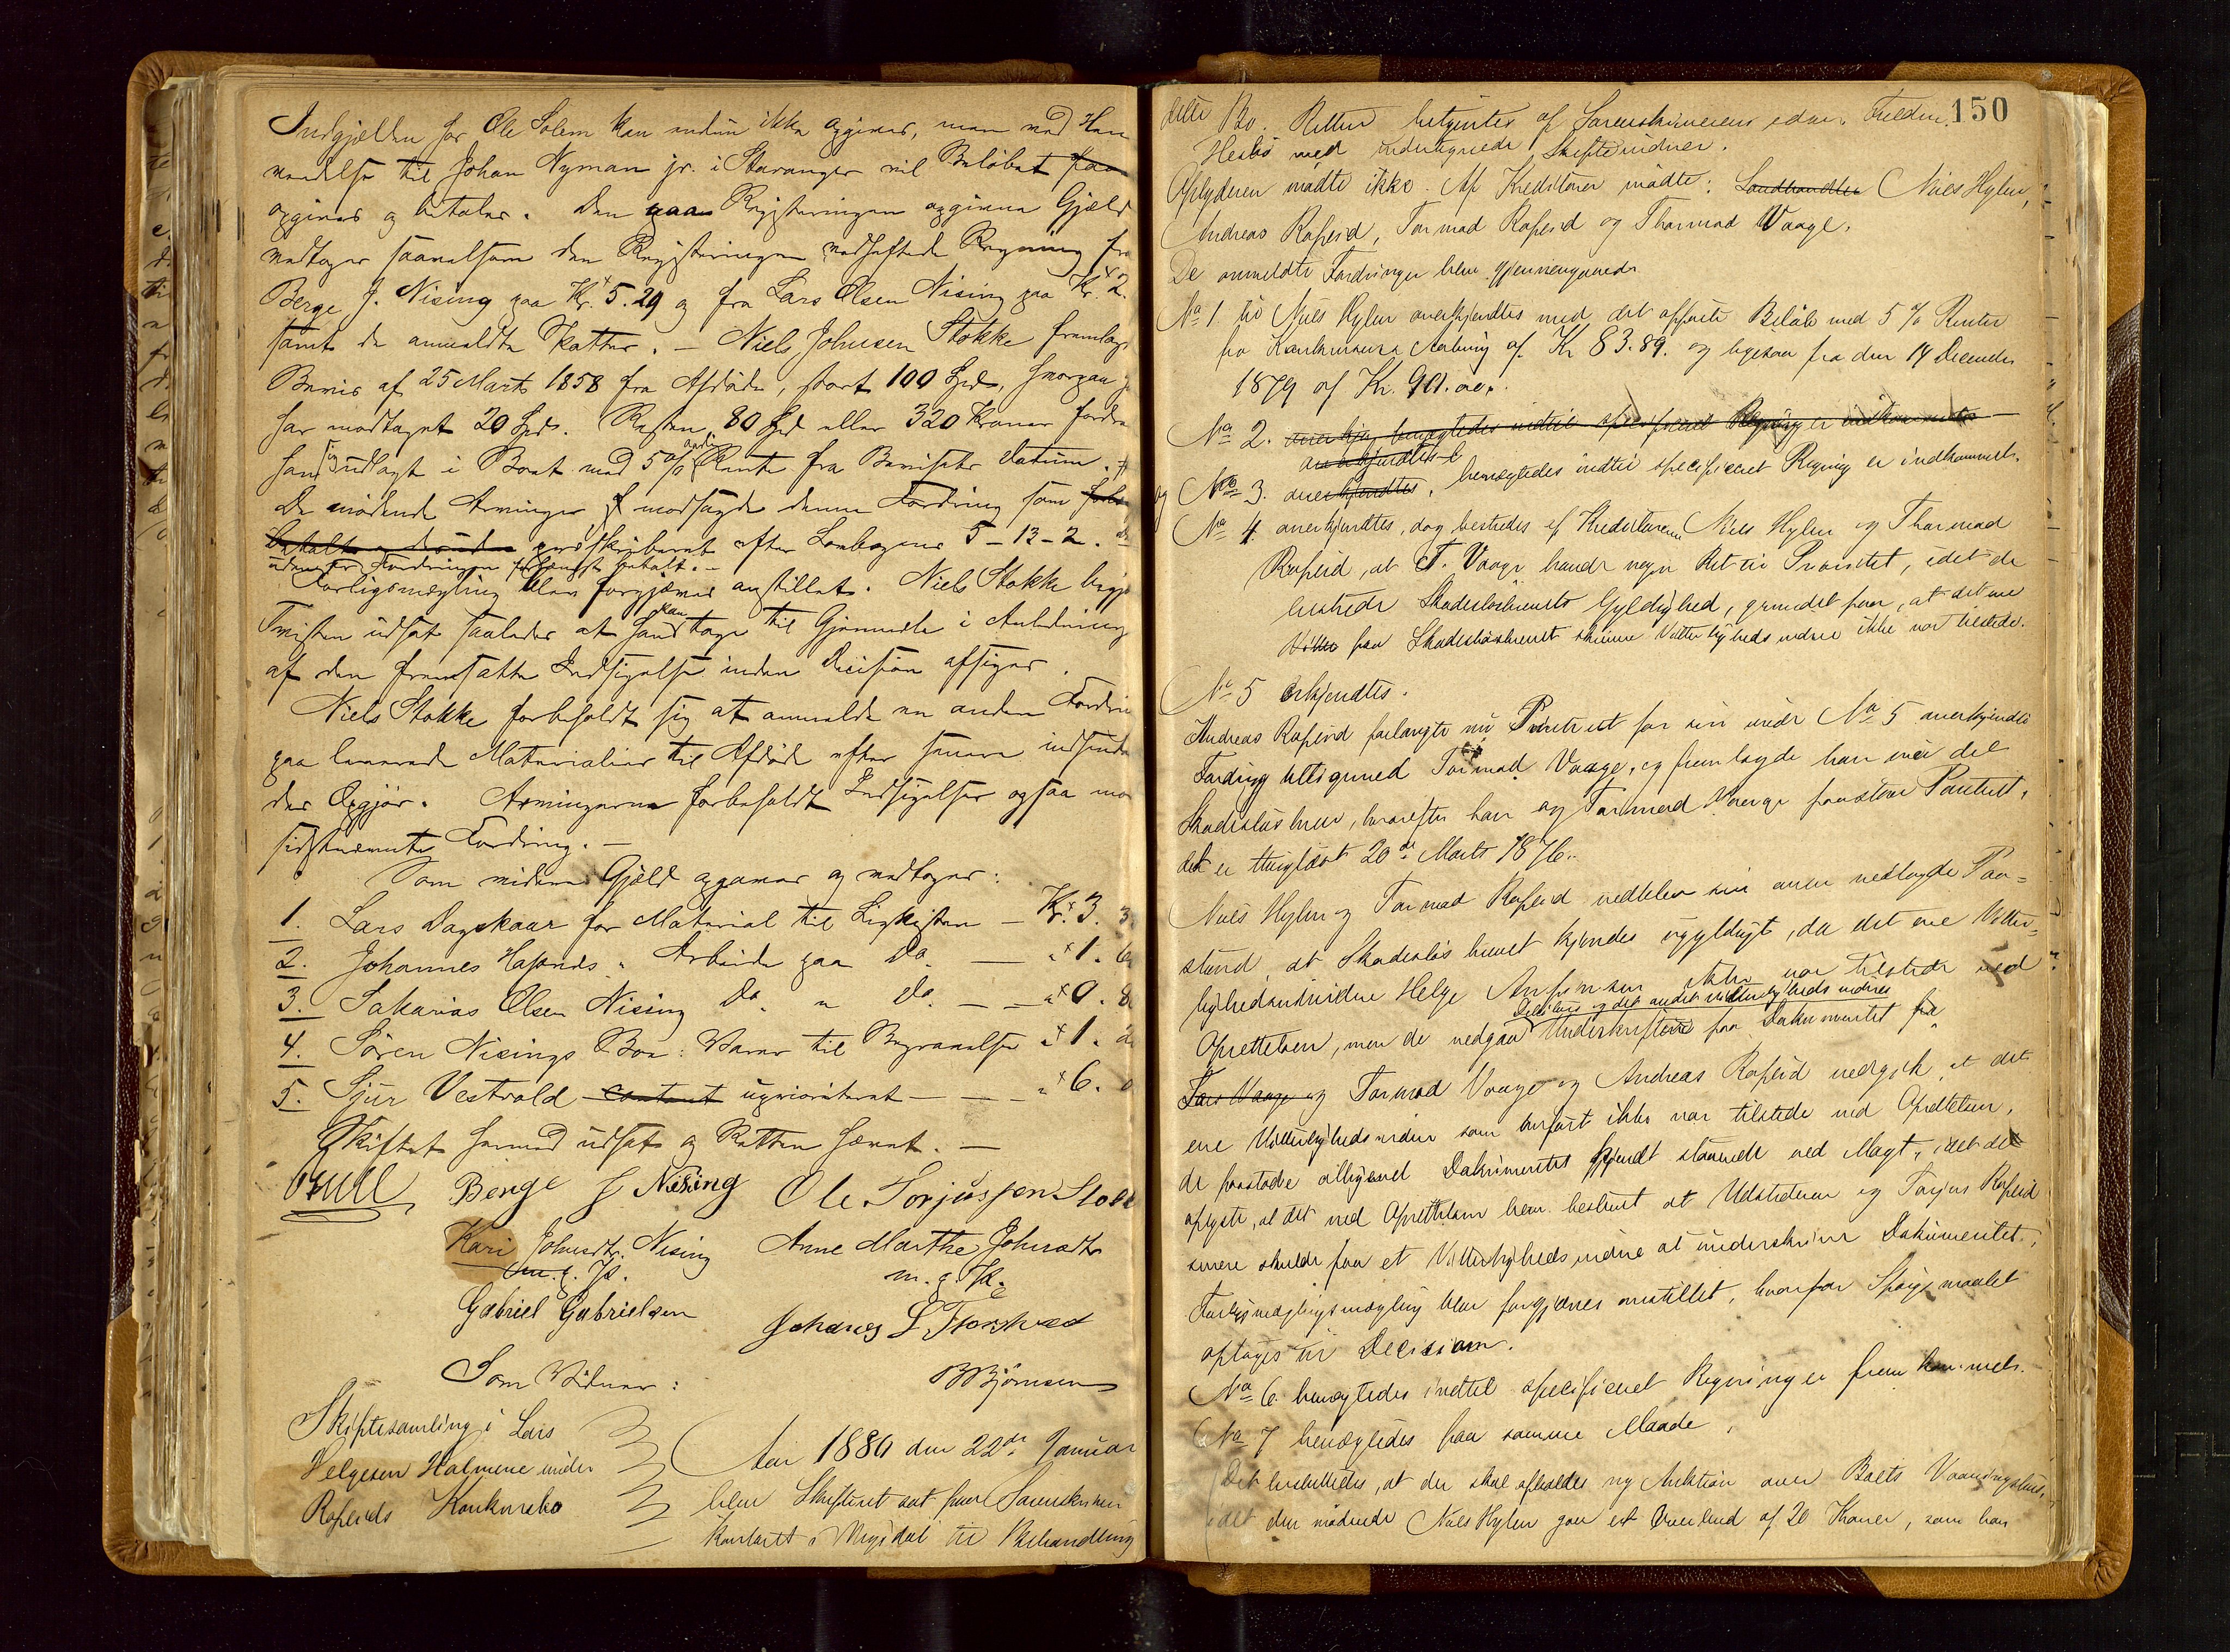 Indgjælden for Ole Solem kan endnu ikke opgives, men ved Hen
vendelse til Johan Nyman jr. i Stavanger vil Beløbet faa
opgives og betales. Den paa Registeringen opgivne Gjæld
vedtages saavelsom den Registeringen vedheftede Regning fra
Berge J. Nising paa Kr. 5.29 og fra Lars Olsen Nising paa Kr. 2.
samt de anmeldte Skatter. — Niels Johnsen Stokke fremlag
Bevis af 25 Marts 1858 fra Afdøde, stort 100 Spd, hvorpaa
har modtaget 20 Spd. Resten 80 Spd eller 320 Kroner fordre
han sig udlagt i Boet med 5 % aarlig Rente fra Bevisets Datum.
De mødende Arvinger modsagde denne Fordring som
betalt præskriberet efter Lovbogens 5-13-2.
uden er Fordringen forlængst betalt. —
Forligsmægling blev forgjæves anstillet. Niels Stokke begjæ
Tvisten udsat saaledes at han kan tage til Gjenmæle i Anledning
af den fremsatte Indsigelse inden Decision afsiges.
Niels Stokke forbeholdt sig at anmelde en anden Fordrin
paa leverede Materialier til Afdøde efter senere indsende
des Opgjør. Arvingerne forbeholdt Indsigelser ogsaa mo
sidstnævnte Fordring. —
Som videre Gjæld opgaves og vedtoges:
1. Lars Dagskaar for Material til Ligkisten — Kr. 3. 3
2. Johannes " Arbeide paa Do. — " 1. 6
3. Sakarias Olsen Nising Do. " Do. — — " 0. 8
4. Sören Nisings Bo: Varer til Begravelse " 1. 2
5. Sjur Vestvold contant uprioriteret — — — " 6. 0
Skiftet hermed udsat og Retten hævet. —
Bull Berge J Nising Ole Torjussen Stole
Kari Johnsdtr. Nising Anne Marthe Johnsdtr
m. f. P. m. p. P.
Gabriel Gabrielsen Johanes L
Som Vidner: B Bjørnsen
Skiftesamling i Lars
Helgesen Holmene under
Ropeids Konkursbo
Aar 1880 den 22de Januar
blev Skifteret sat paa Sorenskriver
kontoret i til Behandling
150
dette Bo. Retten betjentes af Sorenskriverens edsv. Fuldm.
Hesbö med undertegnede Skiftevidner.
Opbyderen mødte ikke. Af Kreditorer mødte: Landhandler Niels Hylen,
Andreas Ropeid, Tormod Ropeid og Thormod Vaage.
De anmeldte Fordringer blev gjennemgaaede
No 1 til Niels Hylen anerkjendtes med det opførte Beløb med 5 % Renter
fra Konkursens Aabning af Kr 83.89. og ligesaa fra den 14 December
1879 af Kr. 90. øre.
No 2. anerkj benægtedes indtil specificeret Regning er indkommet
anerkjendtes
og No 3. anerkjendtes, benægtedes indtil specificeret Regning er indkommet.
No 4. anerkjendtes, dog bestredes af Kreditorerne Niels Hylen og Thormod
Ropeid, at T. Vaage havde nogen Ret til Prioritet, idet de
bestrede Skadesløsbrevets Gyldighed, grundet paa, at det ene
Vitter paa Skadesløsbrevet skrevne Vitterligheds vidne ikke var tilstede.
No 5 erkjendtes.
Andreas Ropeid forlangte nu Panteret for sin under No 5 anerkjendte
Fordring alligemed Tormod Vaage, og fremlagde han nu det
Skadesløsbrev, hvorefter han og Tormod Vaage paastaar Panteret.
det er thinglæst 20de Marts 1876.
Niels Hylen og Tormod Ropeid vedblev sin oven nedlagde Paa=
stand, at Skadesløsbrevet kjendes ugyldigt, da det ene Vitter=
lighedsvidne Helge ikke var tilstede ved
Oprettelsen, men de vedgaa Debitors og det andet vitterligheds vidnes Underskrifterne paa Dokumentet
Lars Vaage og Tormod Vaage og Andreas Ropeid vedgik, at det
ene Vitterligheds vidne som anført ikke var tilstede ved Oprettelsen,
de paastode alligevel Dokumentet kjendt staaende ved Magt, idet det
oplyste, at det ved Oprettelsen blev bestemt at Udstederen og Torjus Ropeid
senere skulde faa et Vitterligheds vidne at underskrive Dokumentet.
Forligsmæglingsmægling blev forgjæves anstillet, hvorfor Spørgsmaalet
optages til Decision.
No 6. benægtedes indtil specificeret Regning er fremkommet.
No 7 benægtedes paa samme Maade.
Det besluttedes, at der skal afholdes ny Auktion over Boets Vaaningshus,
idet den mødende Niels Hylen gav et Overbud af 20 Kroner, som han